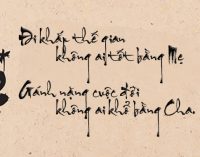 Đi khắp thế gian
không ai tốt bằng Mẹ
Gánh nặng cuộc đời
không ai khổ bằng Cha.